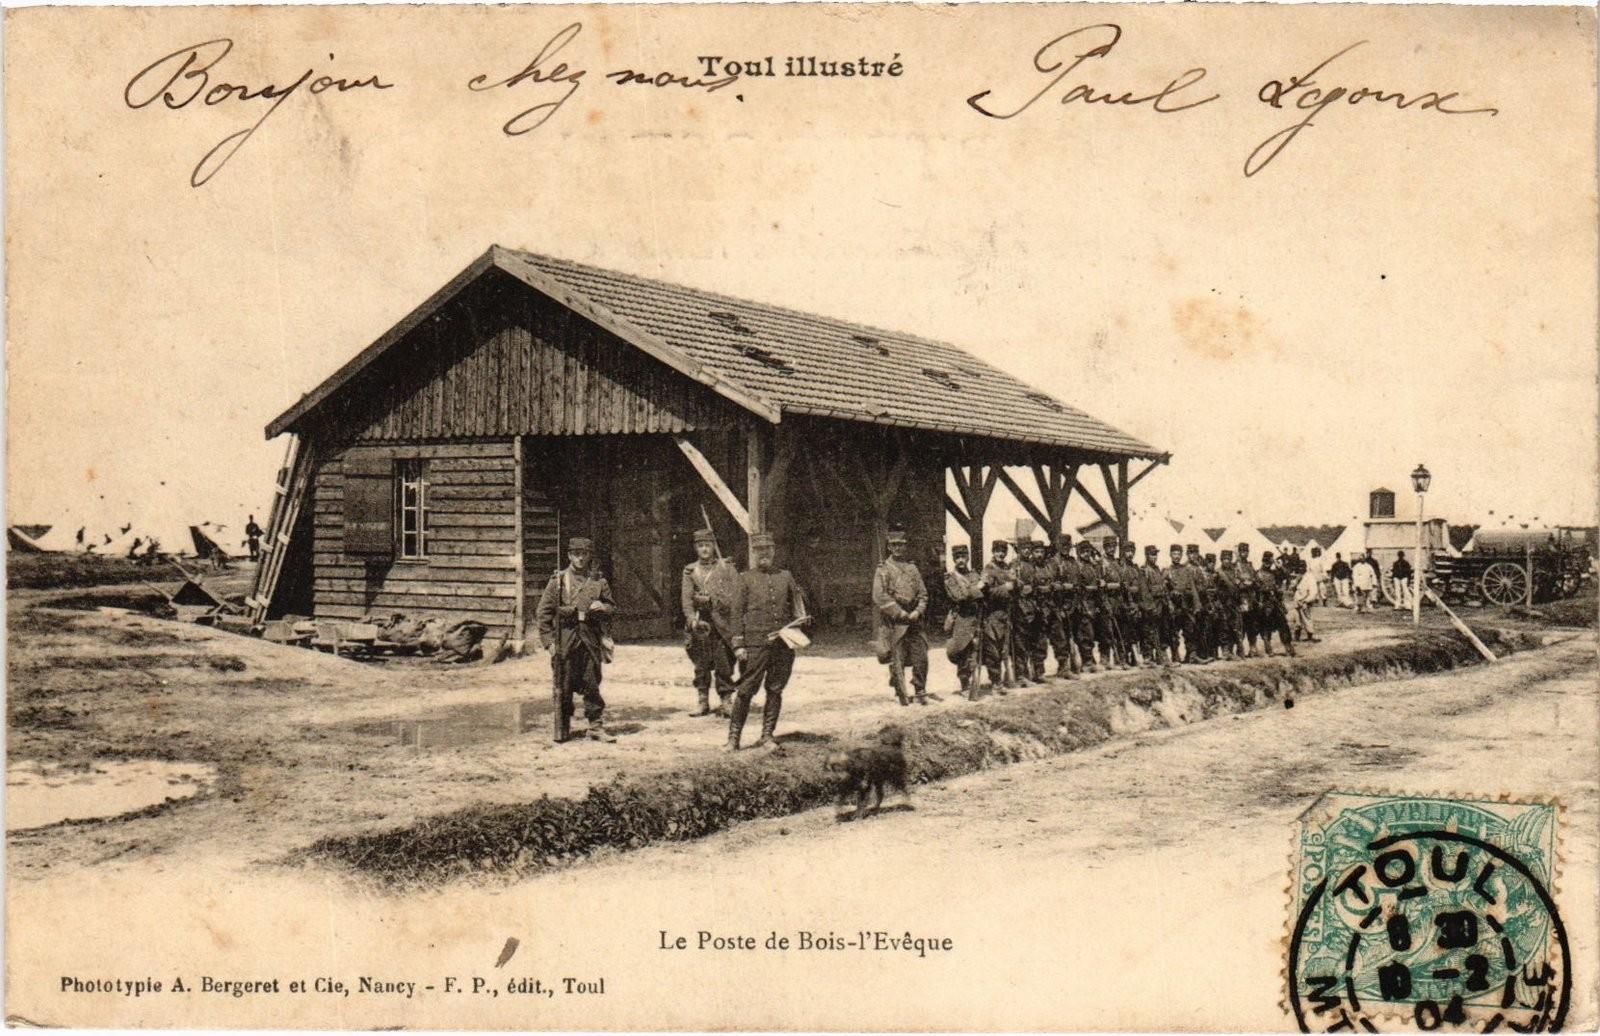 Toul illustré
Bonjour chez nous. Paul Legoux
Le Poste de Bois-l'Evêque
Phototypie A. Bergeret et Cie, Nancy - F. P., édit., Toul
TOUL
8 30
10 -2
04